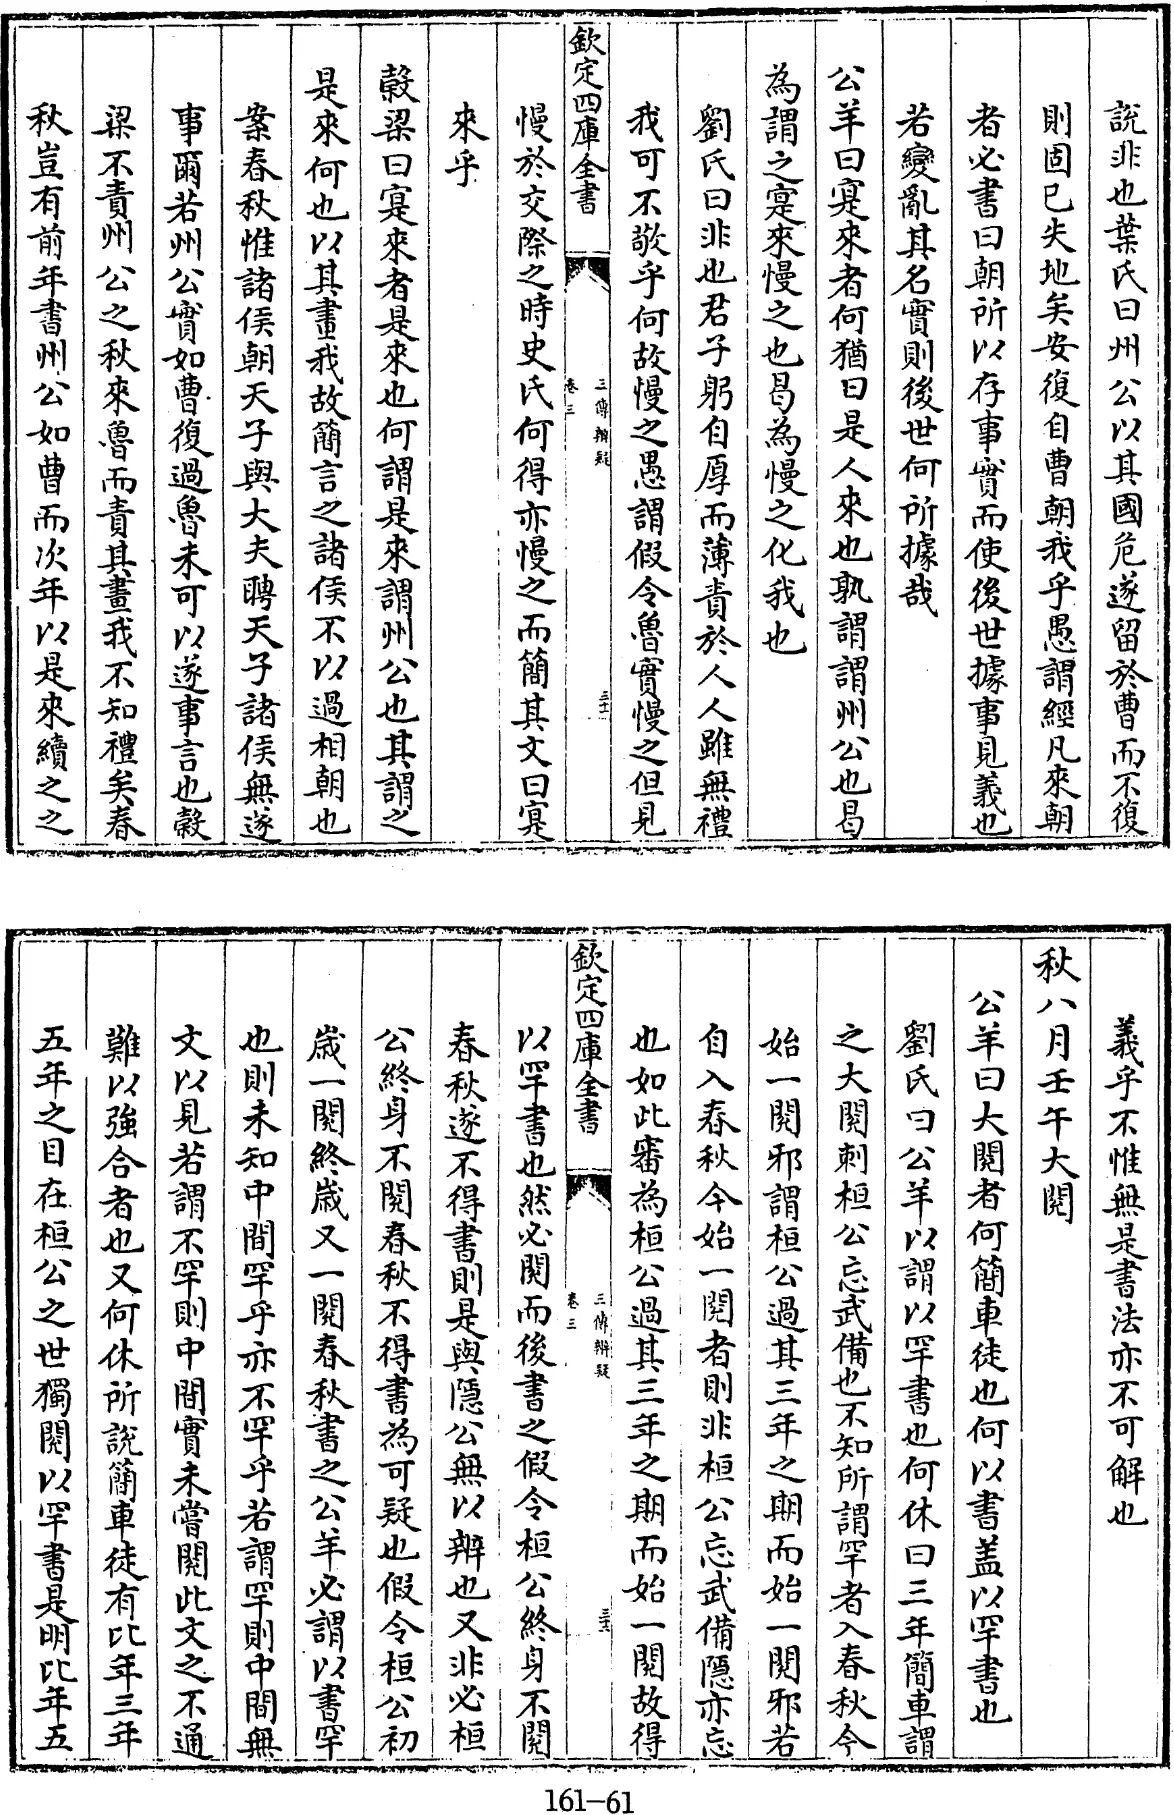 說非也葉氏曰州公以其國危遂留於曹而不復
則固已失地矣安復自曹朝我乎愚謂經凡來朝
者必書曰朝所以存事實而使後世據事見義也
若變亂其名實則後世何所據哉
公羊曰寔來者何猶曰是人來也孰謂謂州公也曷
為謂之寔來慢之也曷為慢之化我也
劉氏曰非也君子躬自厚而薄責於人人雖無禮
我可不敬乎何故慢之愚謂假令魯實慢之但見
欽定四庫全書
三傳辨疑
卷三
慢於交際之時史氏何得亦慢之而簡其文曰寔
來乎
穀梁曰寔來者是來也何謂是來謂州公也其謂之
是來何也以其畫我故簡言之諸侯不以過相朝也
案春秋惟諸侯朝天子與大夫聘天子諸侯無遂
事爾若州公實如曹復過魯未可以遂事言也穀
梁不責州公之秋來魯而責其畫我不知禮矣春
秋豈有前年書州公如曹而次年以是來續之之
義乎不惟無是書法亦不可解也
秋八月壬午大閱
公羊曰大閱者何簡車徒也何以書蓋以罕書也
劉氏曰公羊以謂以罕書也何休曰三年簡車謂
之大閱刺桓公忘武備也不知所謂罕者入春秋今
始一閱邪謂桓公過其三年之期而始一閱邪若
自入春秋今始一閱者則非桓公忘武備隱亦忘
也如此審為桓公過其三年之期而始一閱故得
欽定四庫全書
三傳辨疑
卷三
以罕書也然必閱而後書之假令桓公終身不閱
春秋遂不得書則是與隱公無以辨也又非必桓
公終身不閱春秋不得書為可疑也假令桓公初
歲一閱終歲又一閱春秋書之公羊必謂以書罕
也則未知中間罕乎亦不罕乎若謂罕則中間無
文以見若謂不罕則中間實未嘗閱此文之不通
難以強合者也又何休所說簡車徒有比年三年
五年之目在桓公之世獨閱以罕書是明比年五
161-61